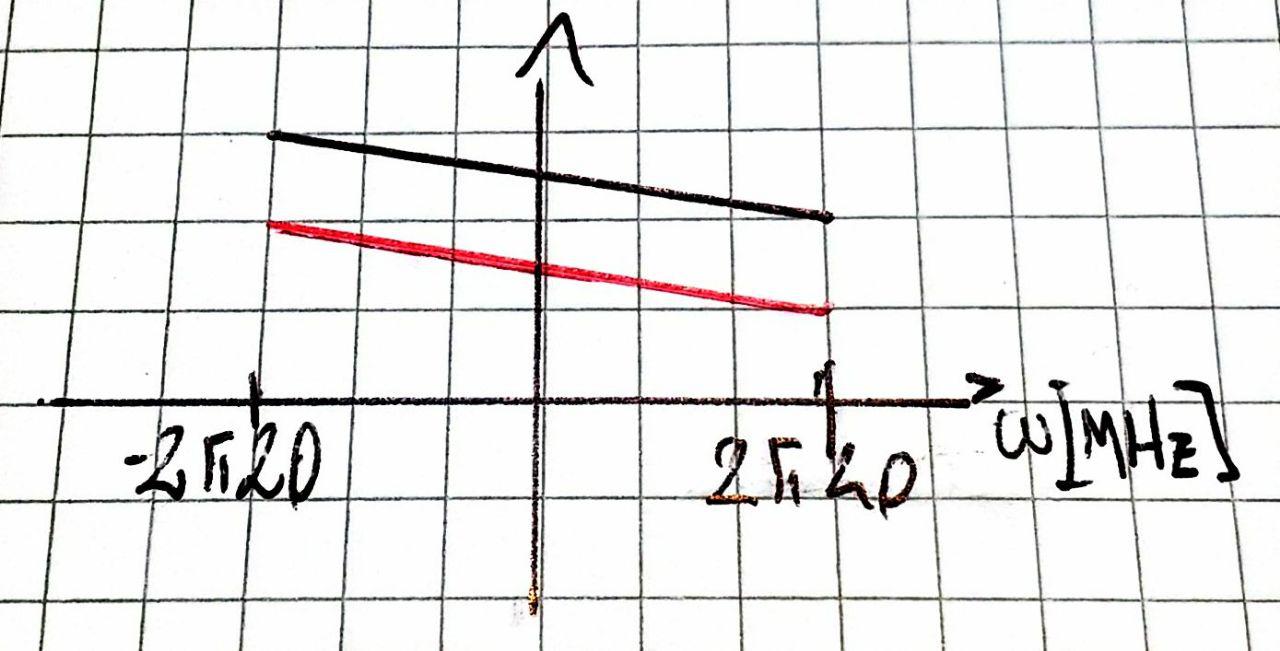 -2π20
2π20
ω[MHz]